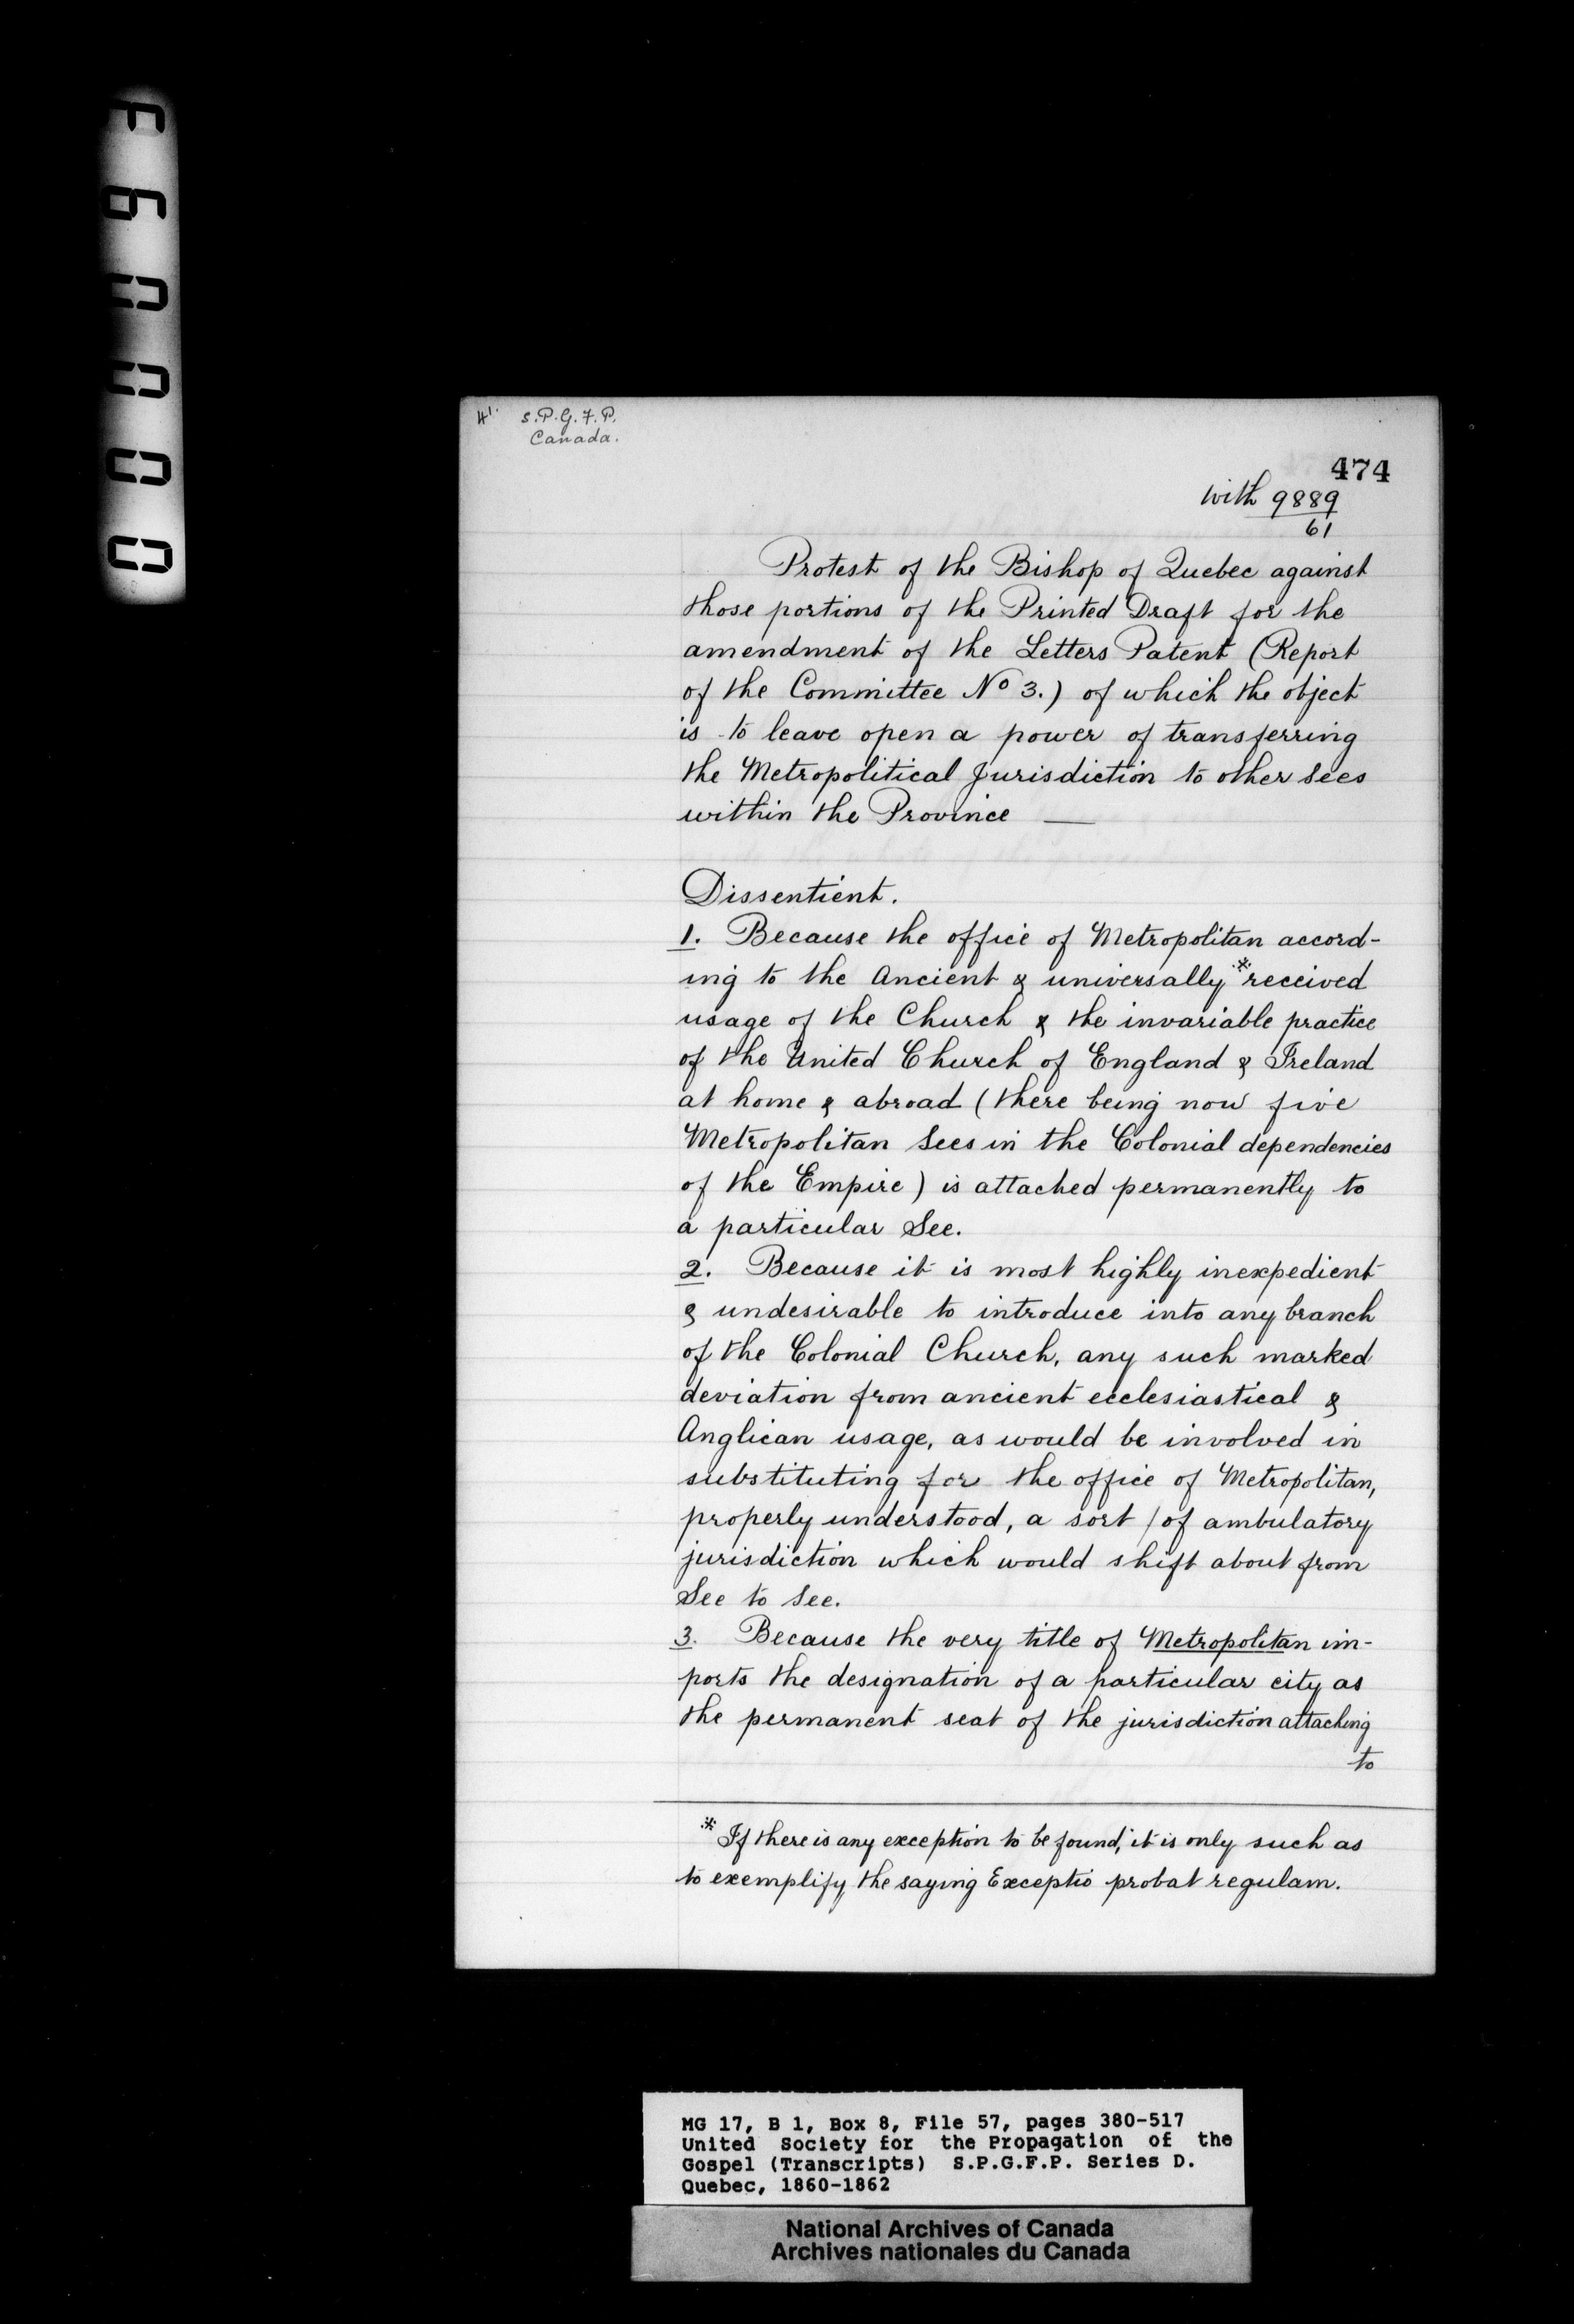 F 6 0 0 0 0
H¹. S.P.G.F.P.
Canada.
474
With 9889
61
Protest of the Bishop of Quebec against
those portions of the Printed Draft for the
amendment of the Letters Patent (Report
of the Committee No 3.) of which the object
is to leave open a power of transferring
the Metropolitical Jurisdiction to other Sees
within the Province —
Dissentient.
1. Because the office of Metropolitan accord-
ing to the Ancient & universally * received
usage of the Church & the invariable practice
of the United Church of England & Ireland
at home & abroad (there being now five
Metropolitan Sees in the Colonial dependencies
of the Empire) is attached permanently to
a particular See.
2. Because it is most highly inexpedient
& undesirable to introduce into any branch
of the Colonial Church, any such marked
deviation from ancient ecclesiastical &
Anglican usage, as would be involved in
substituting for the office of Metropolitan,
properly understood, a sort / of ambulatory
jurisdiction which would shift about from
See to See.
3. Because the very title of Metropolitan im-
ports the designation of a particular city as
the permanent seat of the jurisdiction attaching
to
* If there is any exception to be found, it is only such as
to exemplify the saying Exceptio probat regulam.
MG 17, B 1, Box 8, File 57, pages 380-517
United Society for the Propagation of the
Gospel (Transcripts) S.P.G.F.P. Series D.
Quebec, 1860-1862
National Archives of Canada
Archives nationales du Canada